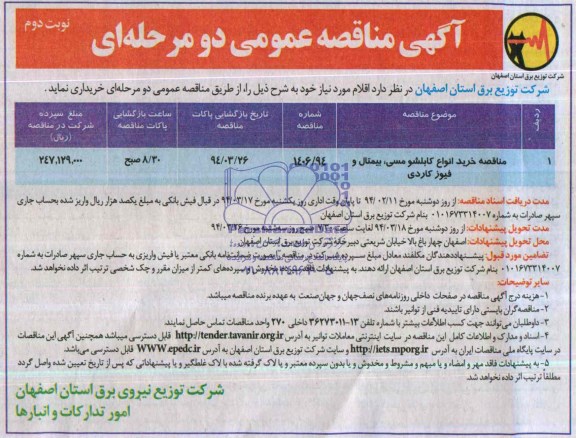 آگهی مناقصه عمومی دو مرحله‌ای
نوبت دوم
شرکت توزیع برق استان اصفهان
شرکت توزیع برق استان اصفهان در نظر دارد اقلام مورد نیاز خود به شرح ذیل را، از طریق مناقصه عمومی دو مرحله‌ای خریداری نماید.
ردیف موضوع مناقصه شماره مناقصه تاریخ بازگشایی پاکات مناقصه ساعت بازگشایی پاکات مناقصه مبلغ سپرده شرکت در مناقصه (ریال)
۱ مناقصه خرید انواع کابلشو مسی، بیمتال و فیوز کاردی ۱۴۰۶/۹۴ ۹۴/۰۳/۲۶ ۸/۳۰ صبح ۲۴۷,۱۷۹,۰۰۰
مدت دریافت اسناد مناقصه: از روز دوشنبه مورخ ۹۴/۰۲/۱۱ تا پایان وقت اداری روز یکشنبه مورخ ۹۴/۰۳/۱۷ در قبال فیش بانکی به مبلغ یکصد هزار ریال واریز شده بحساب جاری
سپهر صادرات به شماره ۰۱۰۱۶۷۳۳۱۴۰۰۷ بنام شرکت توزیع برق استان اصفهان
مدت تحویل پیشنهادات: از روز دوشنبه مورخ ۹۴/۰۳/۱۸ لغایت ساعت صبح روز مورخ
محل تحویل پیشنهادات: اصفهان چهارباغ بالا خیابان شریعتی دبیرخانه شرکت توزیع برق استان اصفهان
تضامین مورد قبول: پیشنهاددهندگان مکلفند معادل مبلغ سپرده شرکت در مناقصه را بصورت ضمانتنامه بانکی معتبر یا فیش واریزی به حساب جاری سپهر صادرات به شماره
۰۱۰۱۶۷۳۳۱۴۰۰۷ بنام شرکت توزیع برق استان اصفهان ارائه دهند. به پیشنهادات فاقد سپرده، مخدوش و سپرده‌های کمتر از میزان مقرر و چک شخصی ترتیب اثر داده نخواهد شد.
سایر توضیحات:
۱- هزینه درج آگهی مناقصه در صفحات داخلی روزنامه‌های نصف‌جهان و جهان‌صنعت به عهده برنده مناقصه میباشد.
۲- مناقصه‌گران بایستی دارای تاییدیه فنی از توانیر باشند.
۳- داوطلبان می‌توانند جهت کسب اطلاعات بیشتر با شماره تلفن ۱۳-۳۶۲۷۳۰۱۱ داخلی ۲۷۰ واحد مناقصات تماس حاصل نمایند.
۴- اسناد و مدارک و اطلاعات کامل این مناقصه در سایت اینترنتی معاملات توانیر به آدرس http://tender.tavanir.org.ir قابل دسترسی میباشد همچنین آگهی این مناقصات
در سایت پایگاه ملی مناقصات ایران به آدرس http://iets.mporg.ir و سایت شرکت توزیع برق استان اصفهان به آدرس WWW.epedc.ir قابل دسترسی می‌باشد.
۵- به پیشنهادات فاقد مهر و امضاء و یا مبهم و مشروط و مخدوش و یا بدون سپرده معتبر و یا لاک گرفته شده با لاک غلطگیر و یا پیشنهاداتی که پس از تاریخ تعیین شده واصل گردد
مطلقاً ترتیب اثر داده نخواهد شد.
شرکت توزیع نیروی برق استان اصفهان
امور تدارکات و انبارها